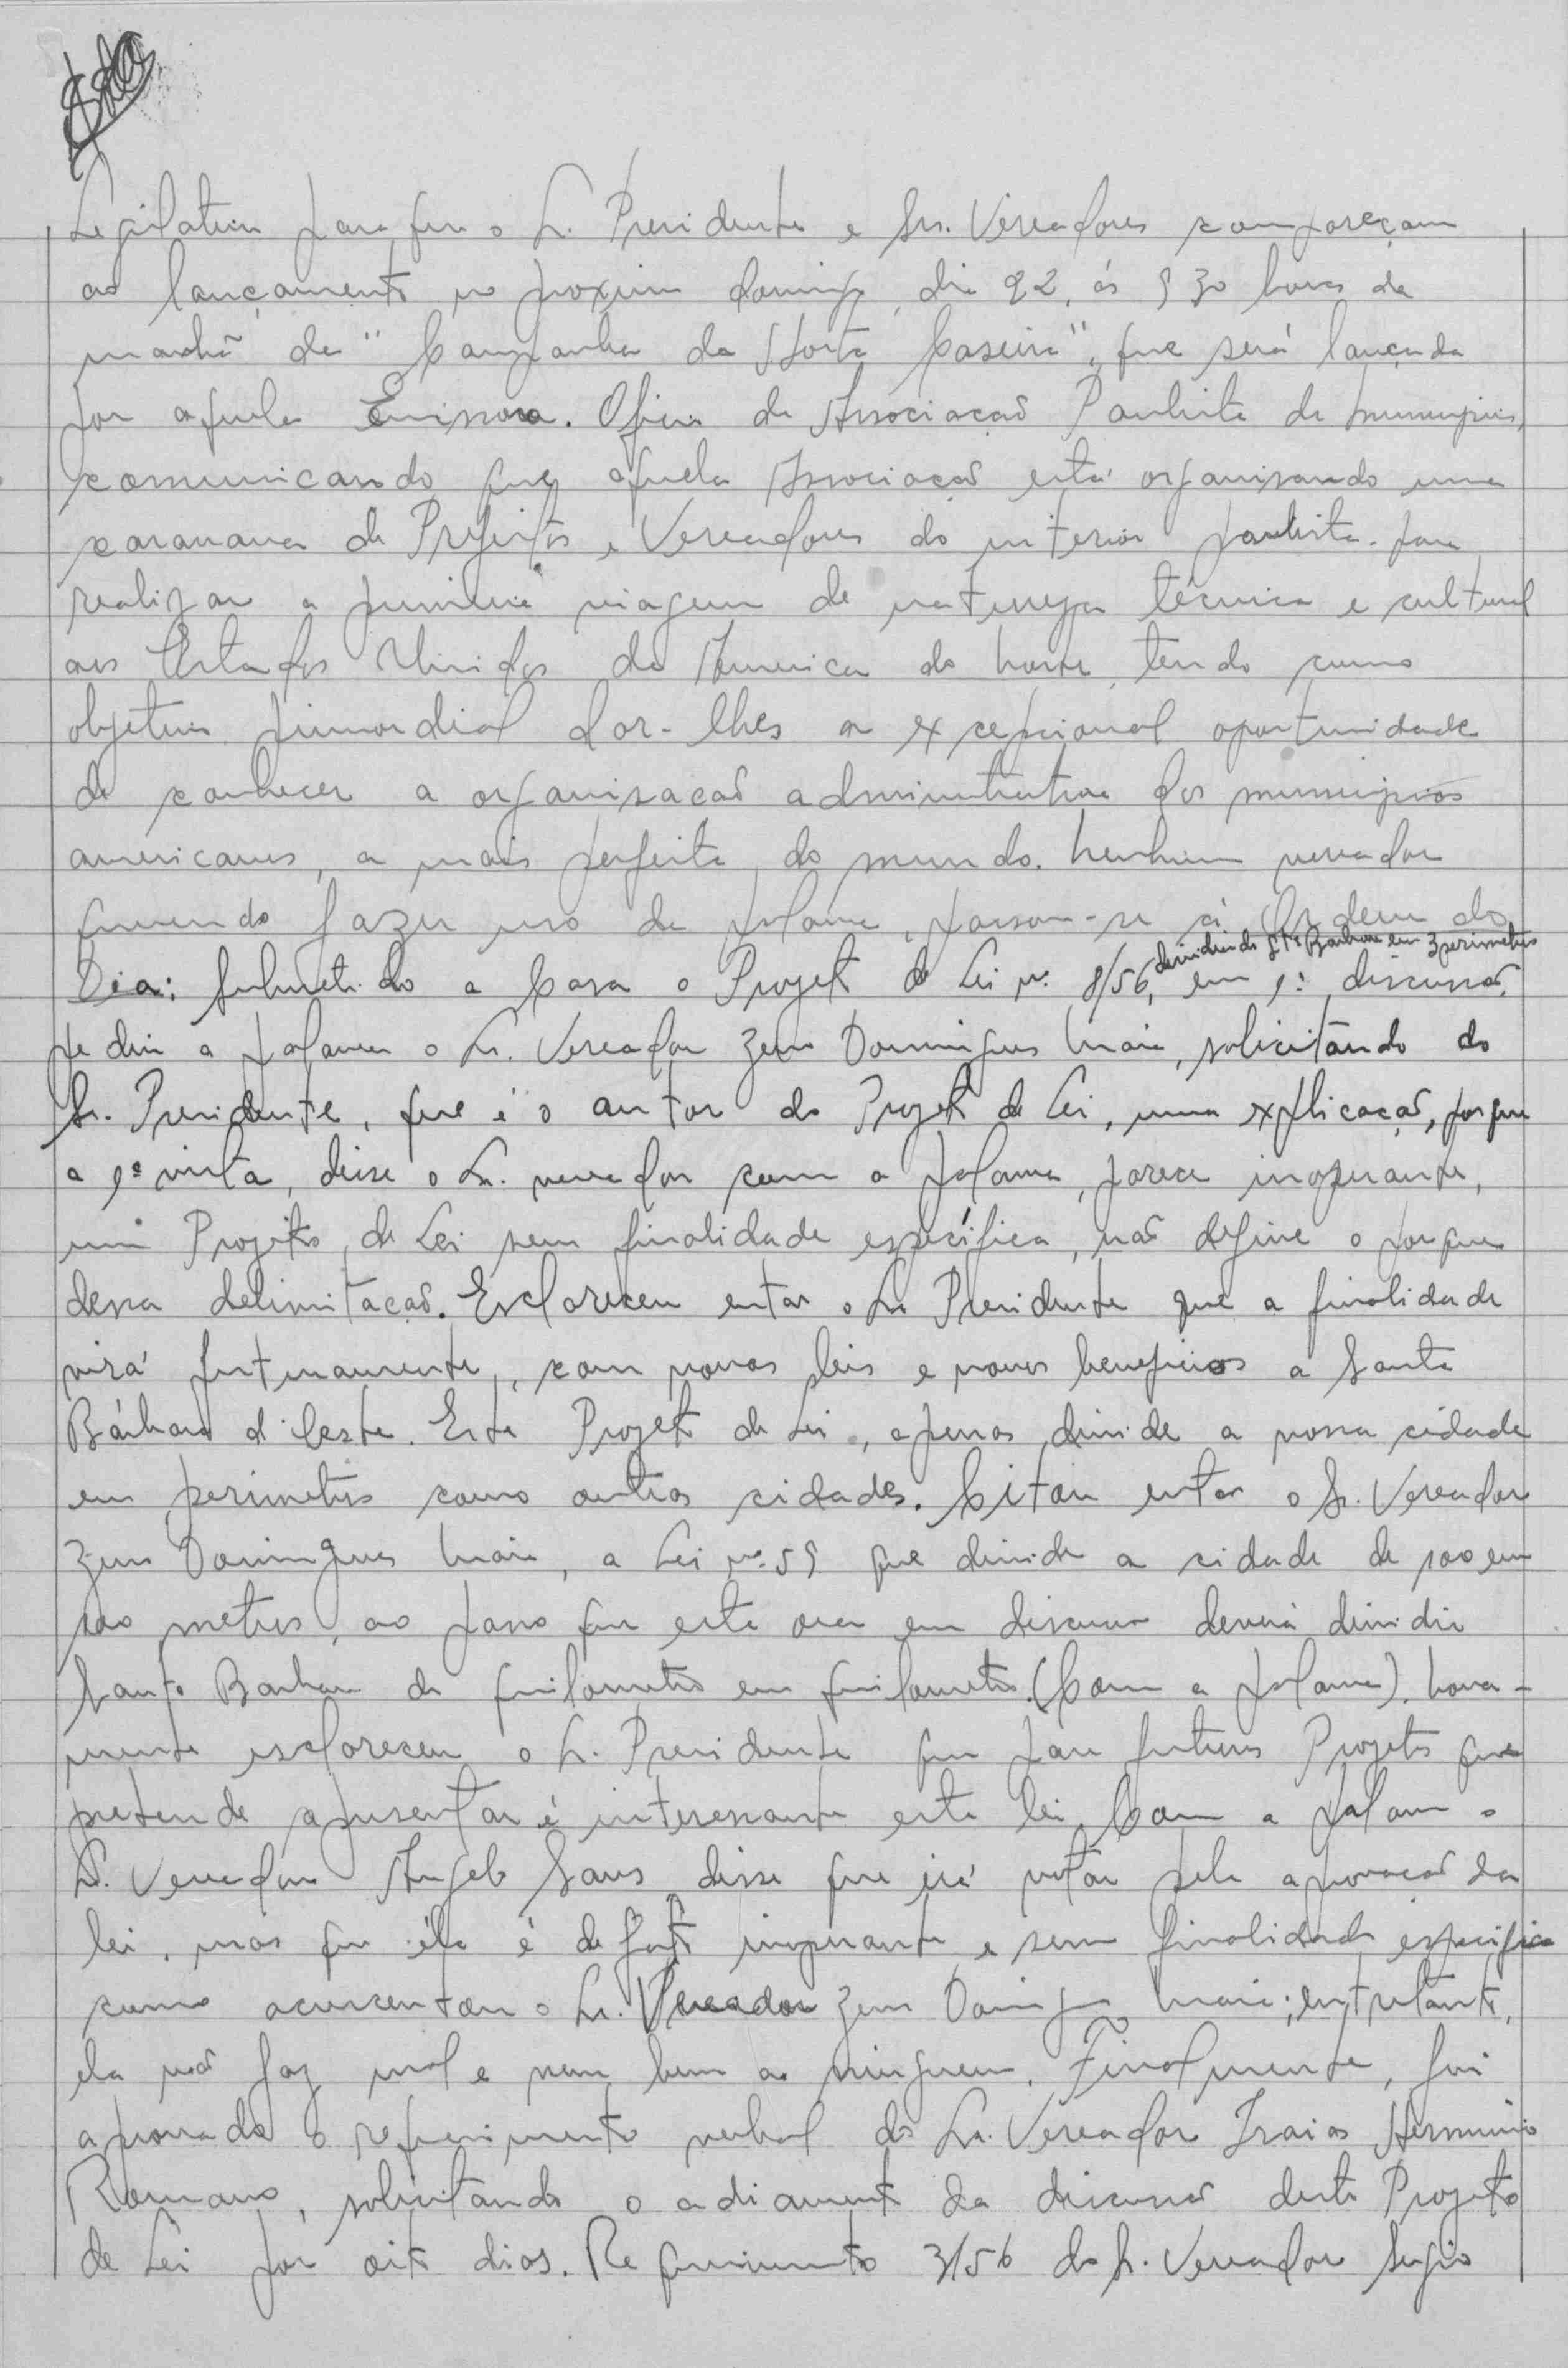 Legislativa para que o Sr. Presidente e Srs. Vereadores compareçam
ao lançamento no proximo domingo, dia 22, ás 9 30 horas da
manhã da "Campanha da Horta Caseira", que será lançada
por aquela Emissora. Oficio da Associacão Paulista de Municipios,
comunicando que aquela Associacão está organisando uma
caravana de Prefeitos e Vereadores do interior paulista para
realizar a primeira viagem de natureza técnica e cultural
aos Estados Unidos da America do Norte, tendo como
objetivo primordial dar-lhes a excepcional oportunidade
de conhecer a organisacão administrativa dos municipios
americanos, a mais perfeita do mundo. Nenhum vereador
querendo fazer uso da palavra, passou-se á Ordem do
Dia: Submetido a Casa o Projeto de Lei nº 8/56, dividindo Sta Barbara em 3 perimetros em 1ª discussão,
pediu a palavra o Sr. Vereador Zeno Domingues Maia, solicitando do
Sr. Presidente, que é o autor do Projeto de Lei, uma explicacão, porque
a 1ª vista, disse o Sr. vereador com a palavra, parece inoperante,
um Projeto de Lei sem finalidade específica, não define o porque
dessa delimitacão. Esclareceu entao o Sr Presidente que a finalidade
virá futuramente, com novas leis e novos beneficios a Santa
Bárbara d'Oeste. Este Projeto de Lei, apenas divide a nossa cidade
em perimetros como outras cidades. Citou entao o Sr. Vereador
Zeno Domingues Maia, a Lei nº 59 que divide a cidade de 100 em
100 metros, ao passo que este ora em discussao deverá dividir
Santa Barbara de quilometro em quilometro. (Com a palavra). Nova-
mente esclareceu o Sr. Presidente que para futuros Projetos que
pretende apresentar é interessante esta lei. Com a palavra o
Sr. Vereador Angelo Sans disse que irá votar pela aprovacão da
lei, mas que éla é de fato inoperante e sem finalidade especifica
como acrescentou o Sr. Vereador Zeno Domingues Maia; entretanto,
ela não faz mal e nem bem a ninguem. Finalmente, foi
aprovado o requerimento verbal do Sr. Vereador Isaias Herminio
Romano, solicitando o adiamento da discussão deste Projeto
de Lei por oito dias. Requerimento 3/56 do Sr. Vereador Sergio